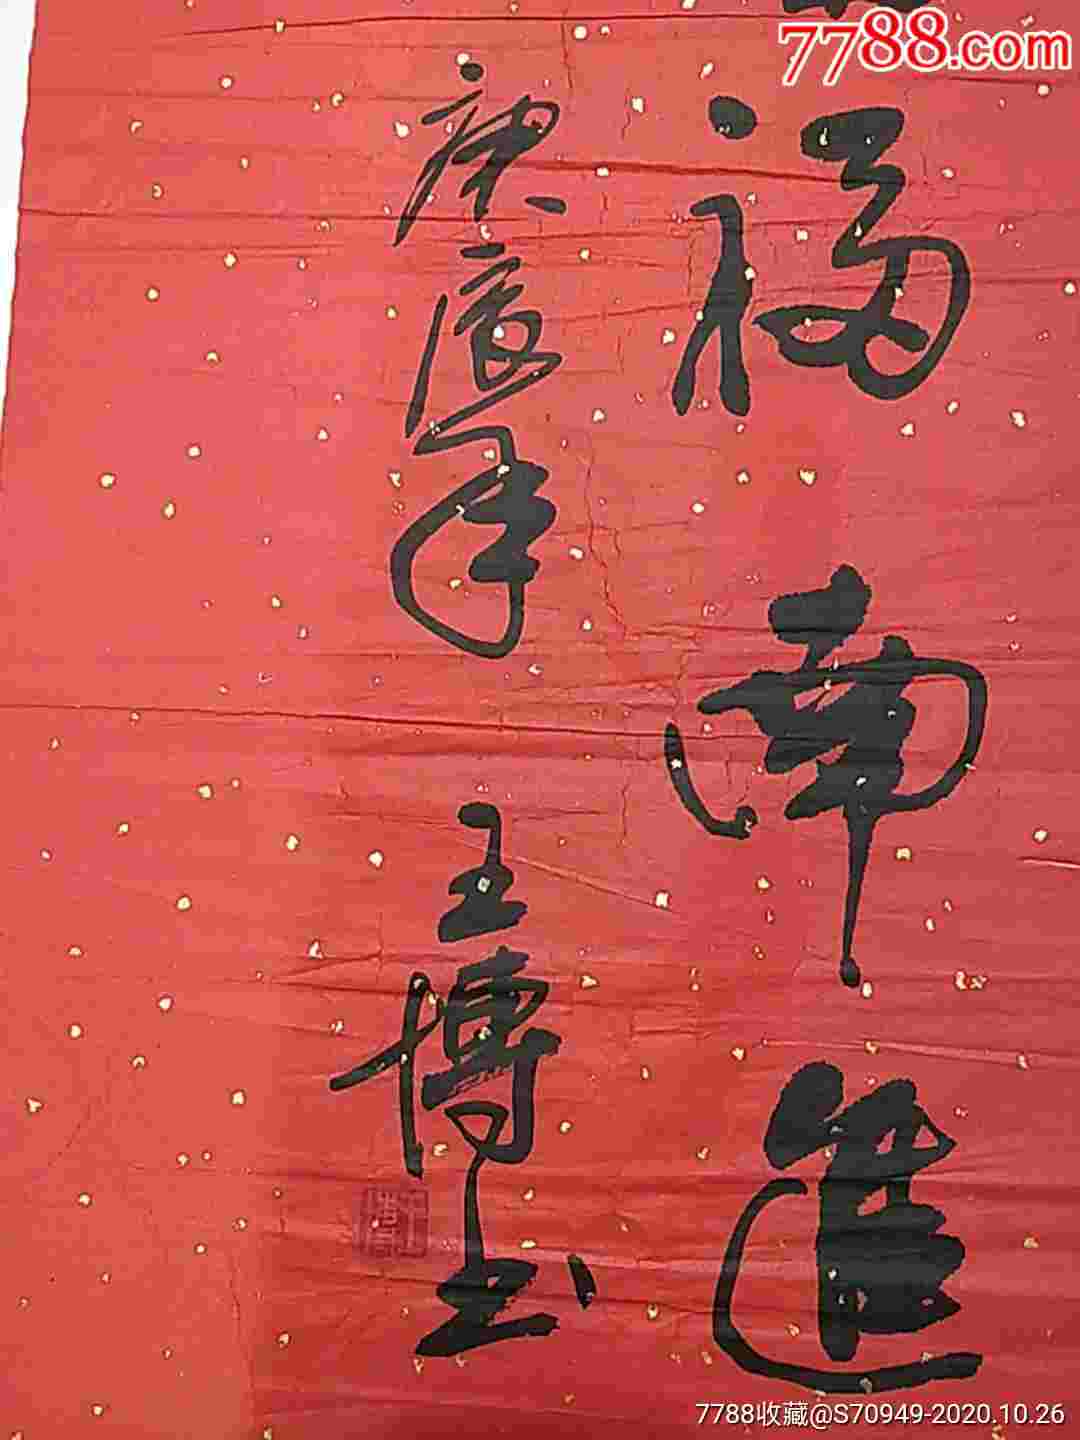 7788.com
福南進
庚辰年 王博玉
7788收藏@S70949-2020.10.26